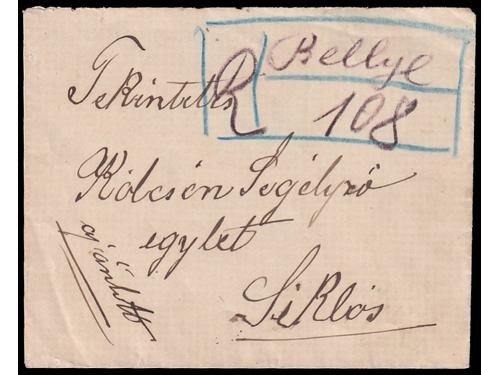 R Bellye
108
Tekintetes
Kölcsön Segélyző
egylet
ajánlott
Siklós